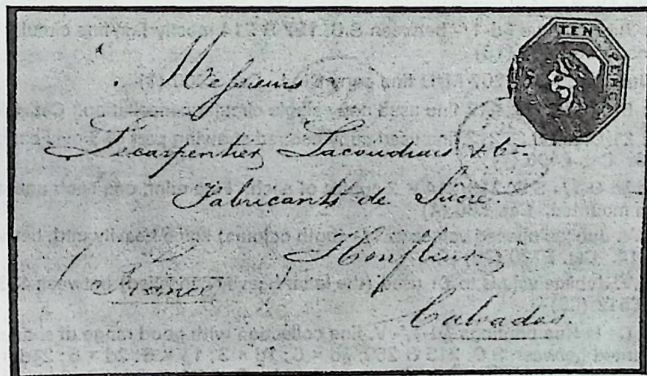 TEN PENCE
Messieurs
Lecarpentier Lacoudrais & Cie
Fabricants de Sucre
Honfleur
France
Calvados.